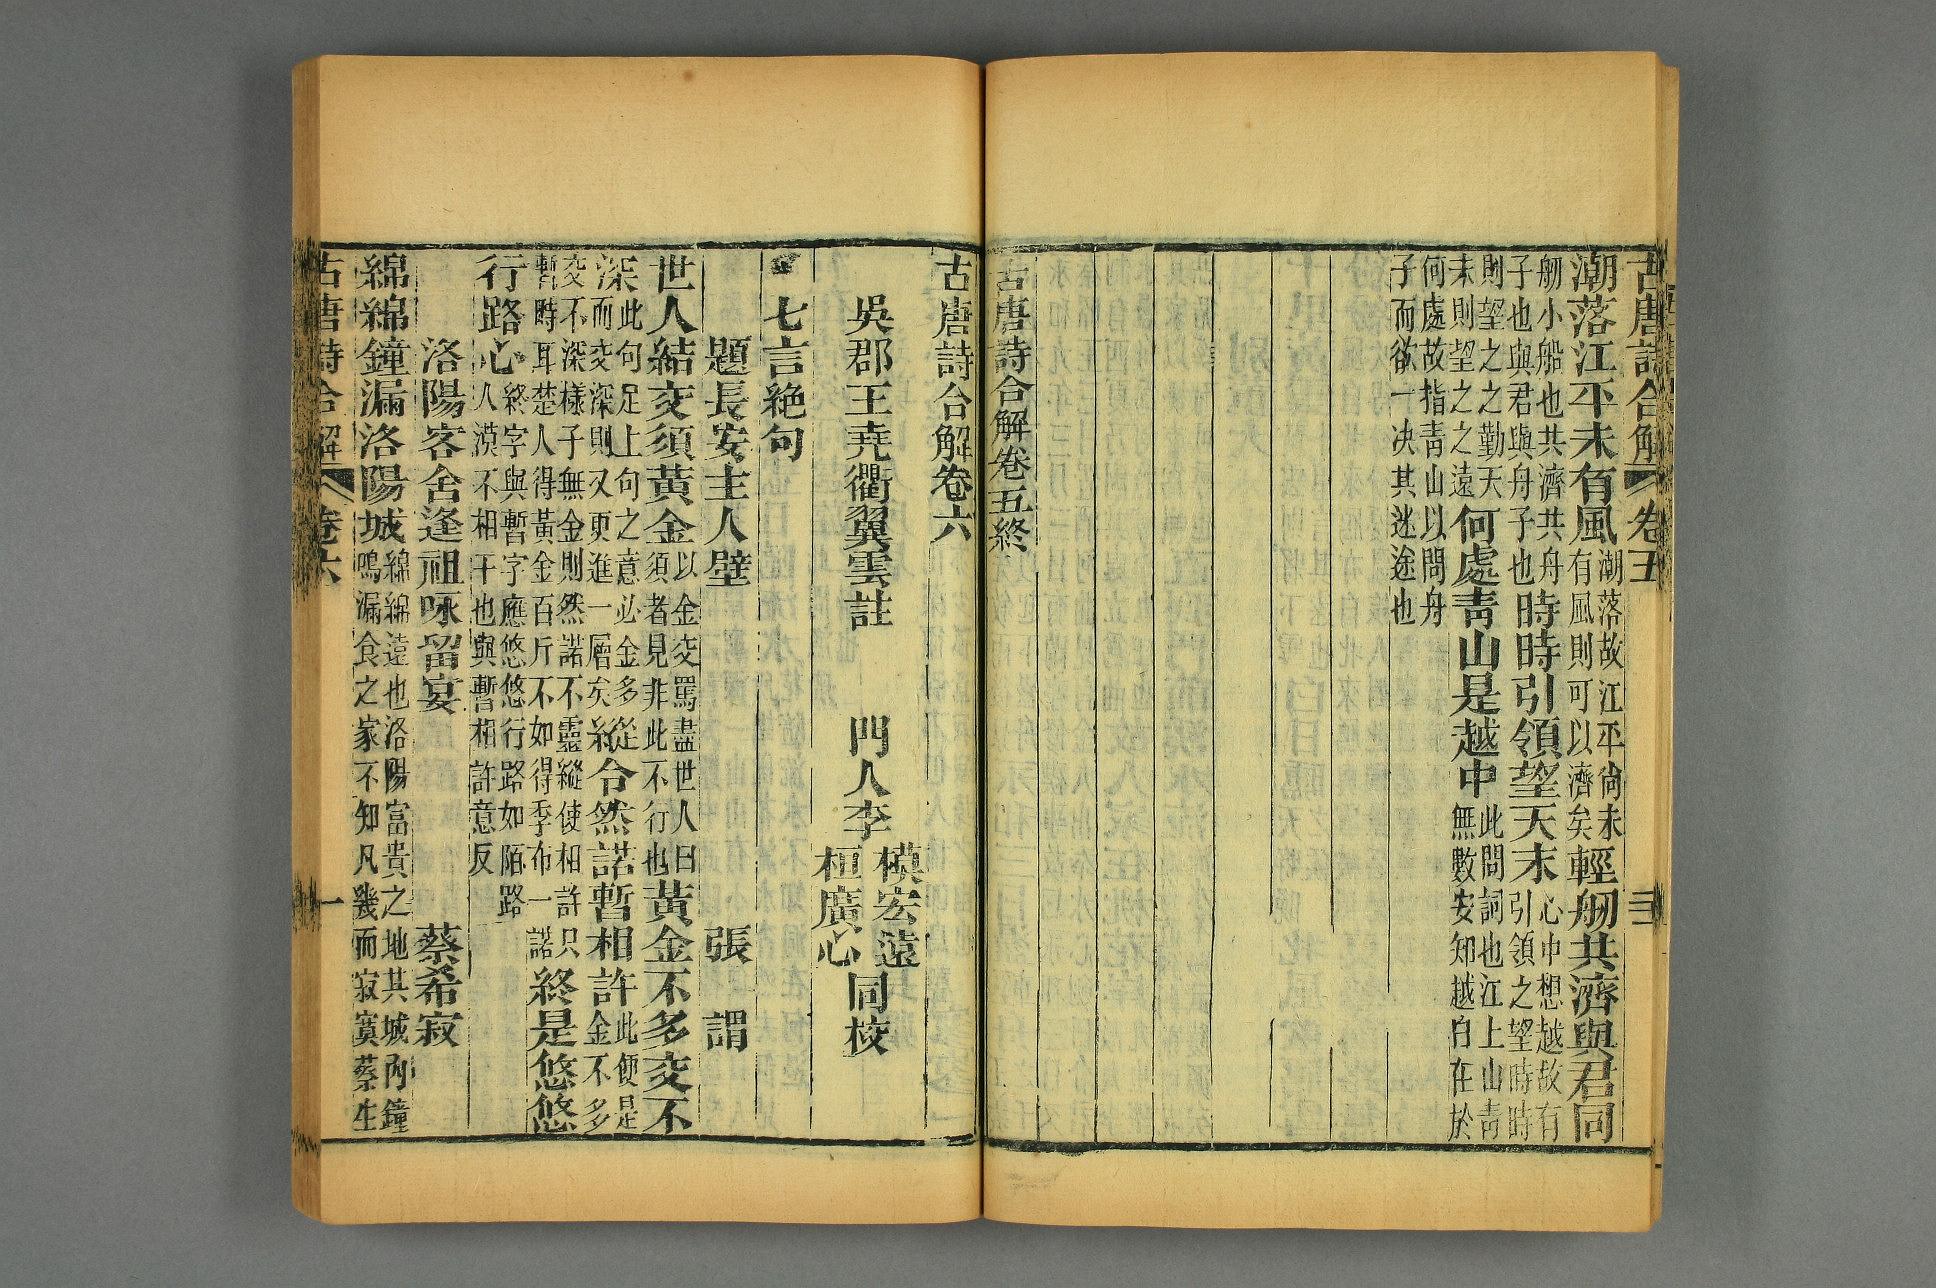 古唐詩合解 卷五 三
潮落江平未有風潮落故江平尚未有風則可以濟矣輕舠共濟與君同
舠小船也共濟共舟子也與君與舟子也時時引領望天末心中想越故有引領之望時時
則望之之勤天末則望之之遠何處青山是越中此問詞也江上山青無數安知越白在於
何處故指青山以問舟子而欲一决其迷途也
古唐詩合解卷五終
古唐詩合解卷六
吳郡王堯衢翼雲註 門人李模宏遠桓廣心同校
七言絶句
題長安主人壁 張謂
世人結交須黃金以金交罵盡世人曰須者見非此不行也黃金不多交不
深此句足上句之意必金多從而交深則又更進一層矣縱令然諾暫相許此便是金不多
交不深樣子無金則然諾不靈縱使相許只暫時耳楚人得黃金百斤不如得季布一諾終是悠悠
行路心終字與暫字應悠悠行路如陌路人漠不相干也與暫相許意反
洛陽客舍逢祖咏留宴 蔡希寂
綿綿鐘漏洛陽城綿綿遠也洛陽富貴之地其城内鐘鳴漏食之家不知凡幾而寂寞蔡生
古唐詩合解 卷六 一